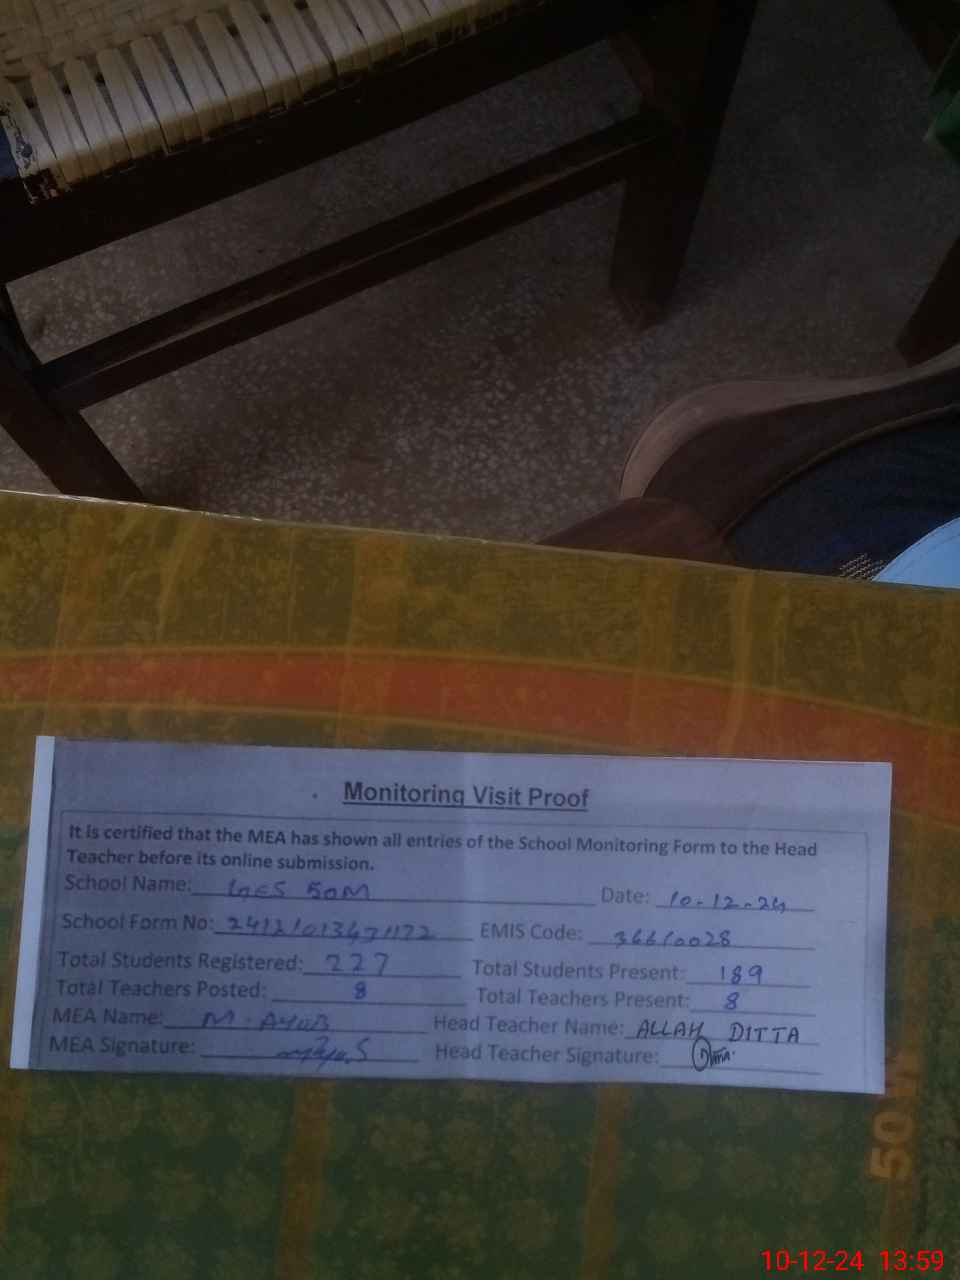 Monitoring Visit Proof
It is certified that the MEA has shown all entries of the School Monitoring Form to the Head
Teacher before its online submission.
School Name: GES 50M Date: 10-12-24
School Form No: EMIS Code: 36610028
Total Students Registered: 227 Total Students Present: 189
Total Teachers Posted: 8 Total Teachers Present: 8
MEA Name: M. AYUB Head Teacher Name: ALLAH DITTA
MEA Signature: Head Teacher Signature: Ditta
50
10-12-24 13:59